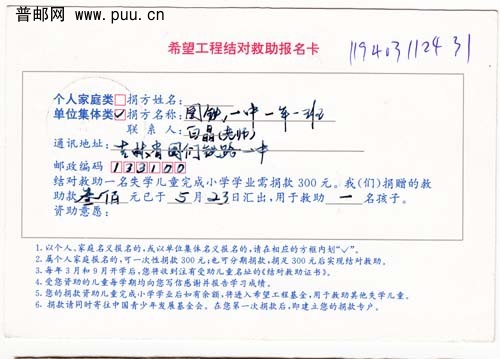 普邮网
www.puu.cn
希望工程结对救助报名卡
119403112431
个人家庭类□捐方姓名:
单位集体类☑捐方名称:图铁,一中一年一班
联系人:白晶(老师)
通讯地址:吉林省图们铁路一中
邮政编码 133100
结对救助一名失学儿童完成小学学业需捐款300元。我(们)捐赠的救
助款叁佰元已于5月23日汇出,用于救助一名孩子。
资助意愿:
1.以个人、家庭名义报名的,或以单位集体名义报名的,请在相应的方框内划“✓”。
2.属个人家庭报名的,可一次性捐款300元,也可分期捐款,捐足300元后实现结对救助。
3.每年3月和9月开学后,您将收到注有受助儿童名址的《结对救助证书》。
4.受您资助的儿童每学期均向您写信感谢并报告学习成绩。
5.您的捐款资助儿童完成小学学业后如有余额,将进入希望工程基金,用于救助其他失学儿童。
6.捐款请同时寄往中国青少年发展基金会。在您第一次捐款后,即建立您的捐款专户。